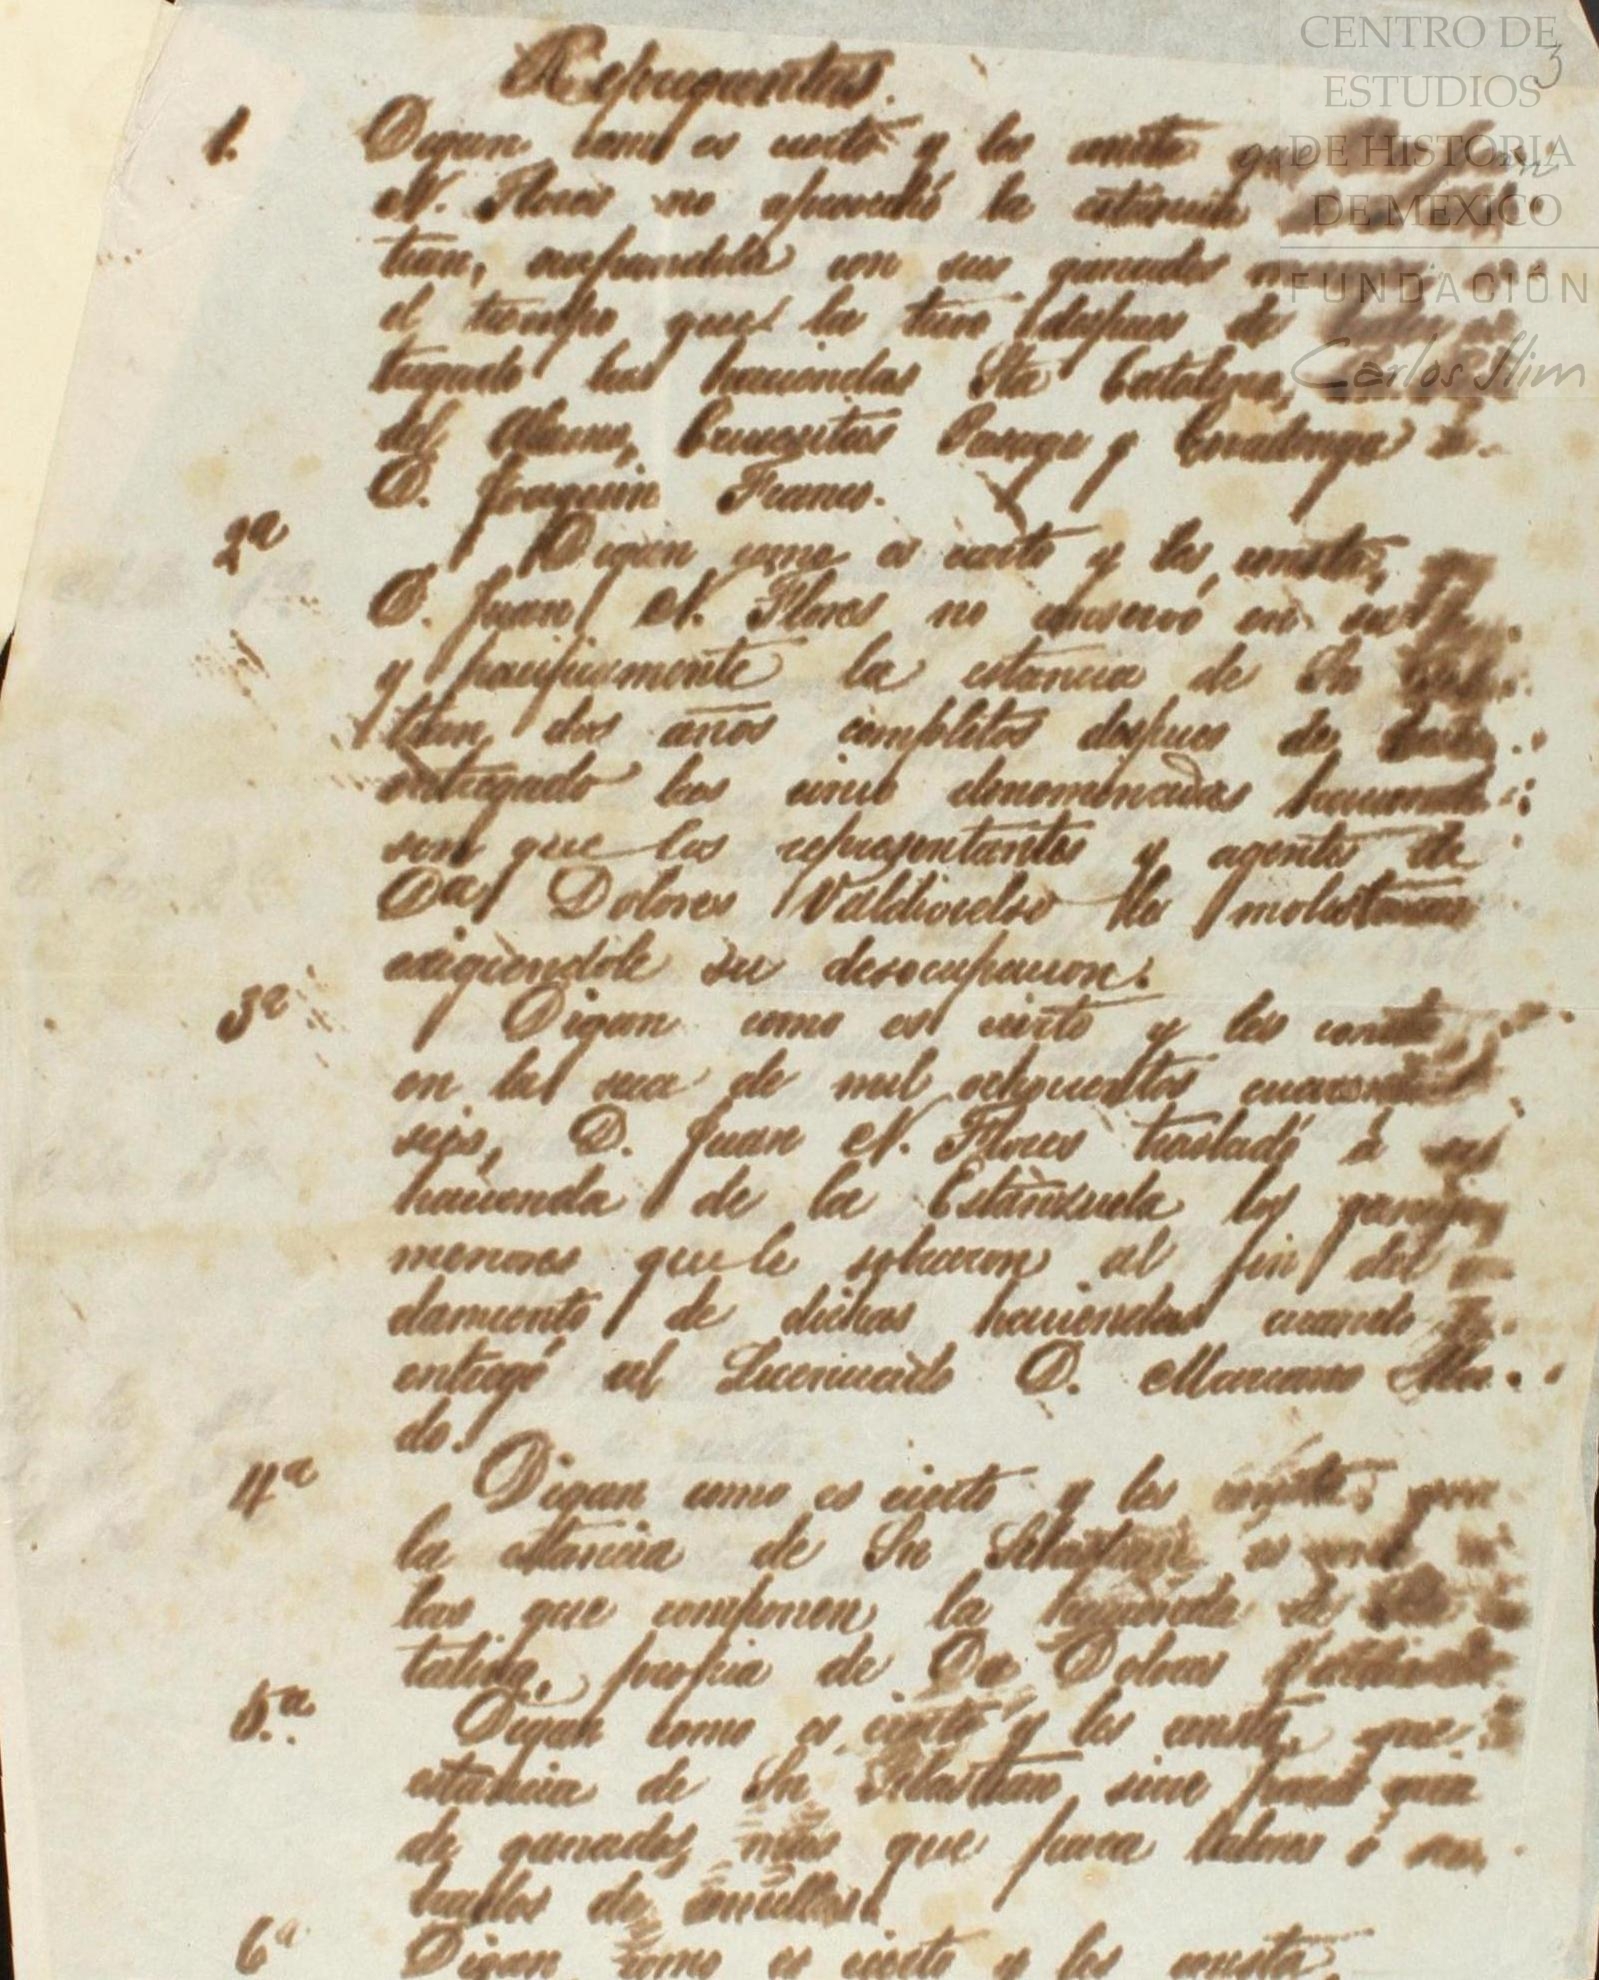 CENTRO DE
ESTUDIOS
DE HISTORIA
DE MÉXICO
FUNDACIÓN
Carlos Slim
3
Repreguntas.
1. Digan como es cierto y les consta que
N. Flores no aprovechó la estancia
tian, con sus ganados
el tiempo que la tuvo despues de haber en
tregado las haciendas Sta Catalina,
del Alamo, Cruzesitas Pasage y Covadonga á
D. Joaquin Franco.
2ª Digan como es cierto y les consta, que
D. Juan N. Flores no conservó en
y pacificamente la estancia de Sn Sebas
tian dos años completos despues de haber
entregado las cinco denominadas haciendas
sin que los representantes y agentes de
Da Dolores Valdivielso le molestaran
exigiendole su desocupacion.
3ª Digan como es cierto y les consta
en la seca de mil ochocientos cuarenta
seis, D. Juan N. Flores trasladó á su
hacienda de la Estanzuela los ganados
menores que le sobraron al fin del
damiento de dichas haciendas cuando
entregó al Licenciado D. Mariano
do.
4ª Digan como es cierto y les consta, que
la estancia de Sn Sebastian es una de
las que componen la hacienda de Sta Ca
talina, propia de Da Dolores Valdivielso
5.ª Digan como es cierto y les consta, que la
estancia de Sn Sebastian sirve para cria
de ganados, mas que para labores ó
de semillas.
6ª Digan como es cierto y les consta,